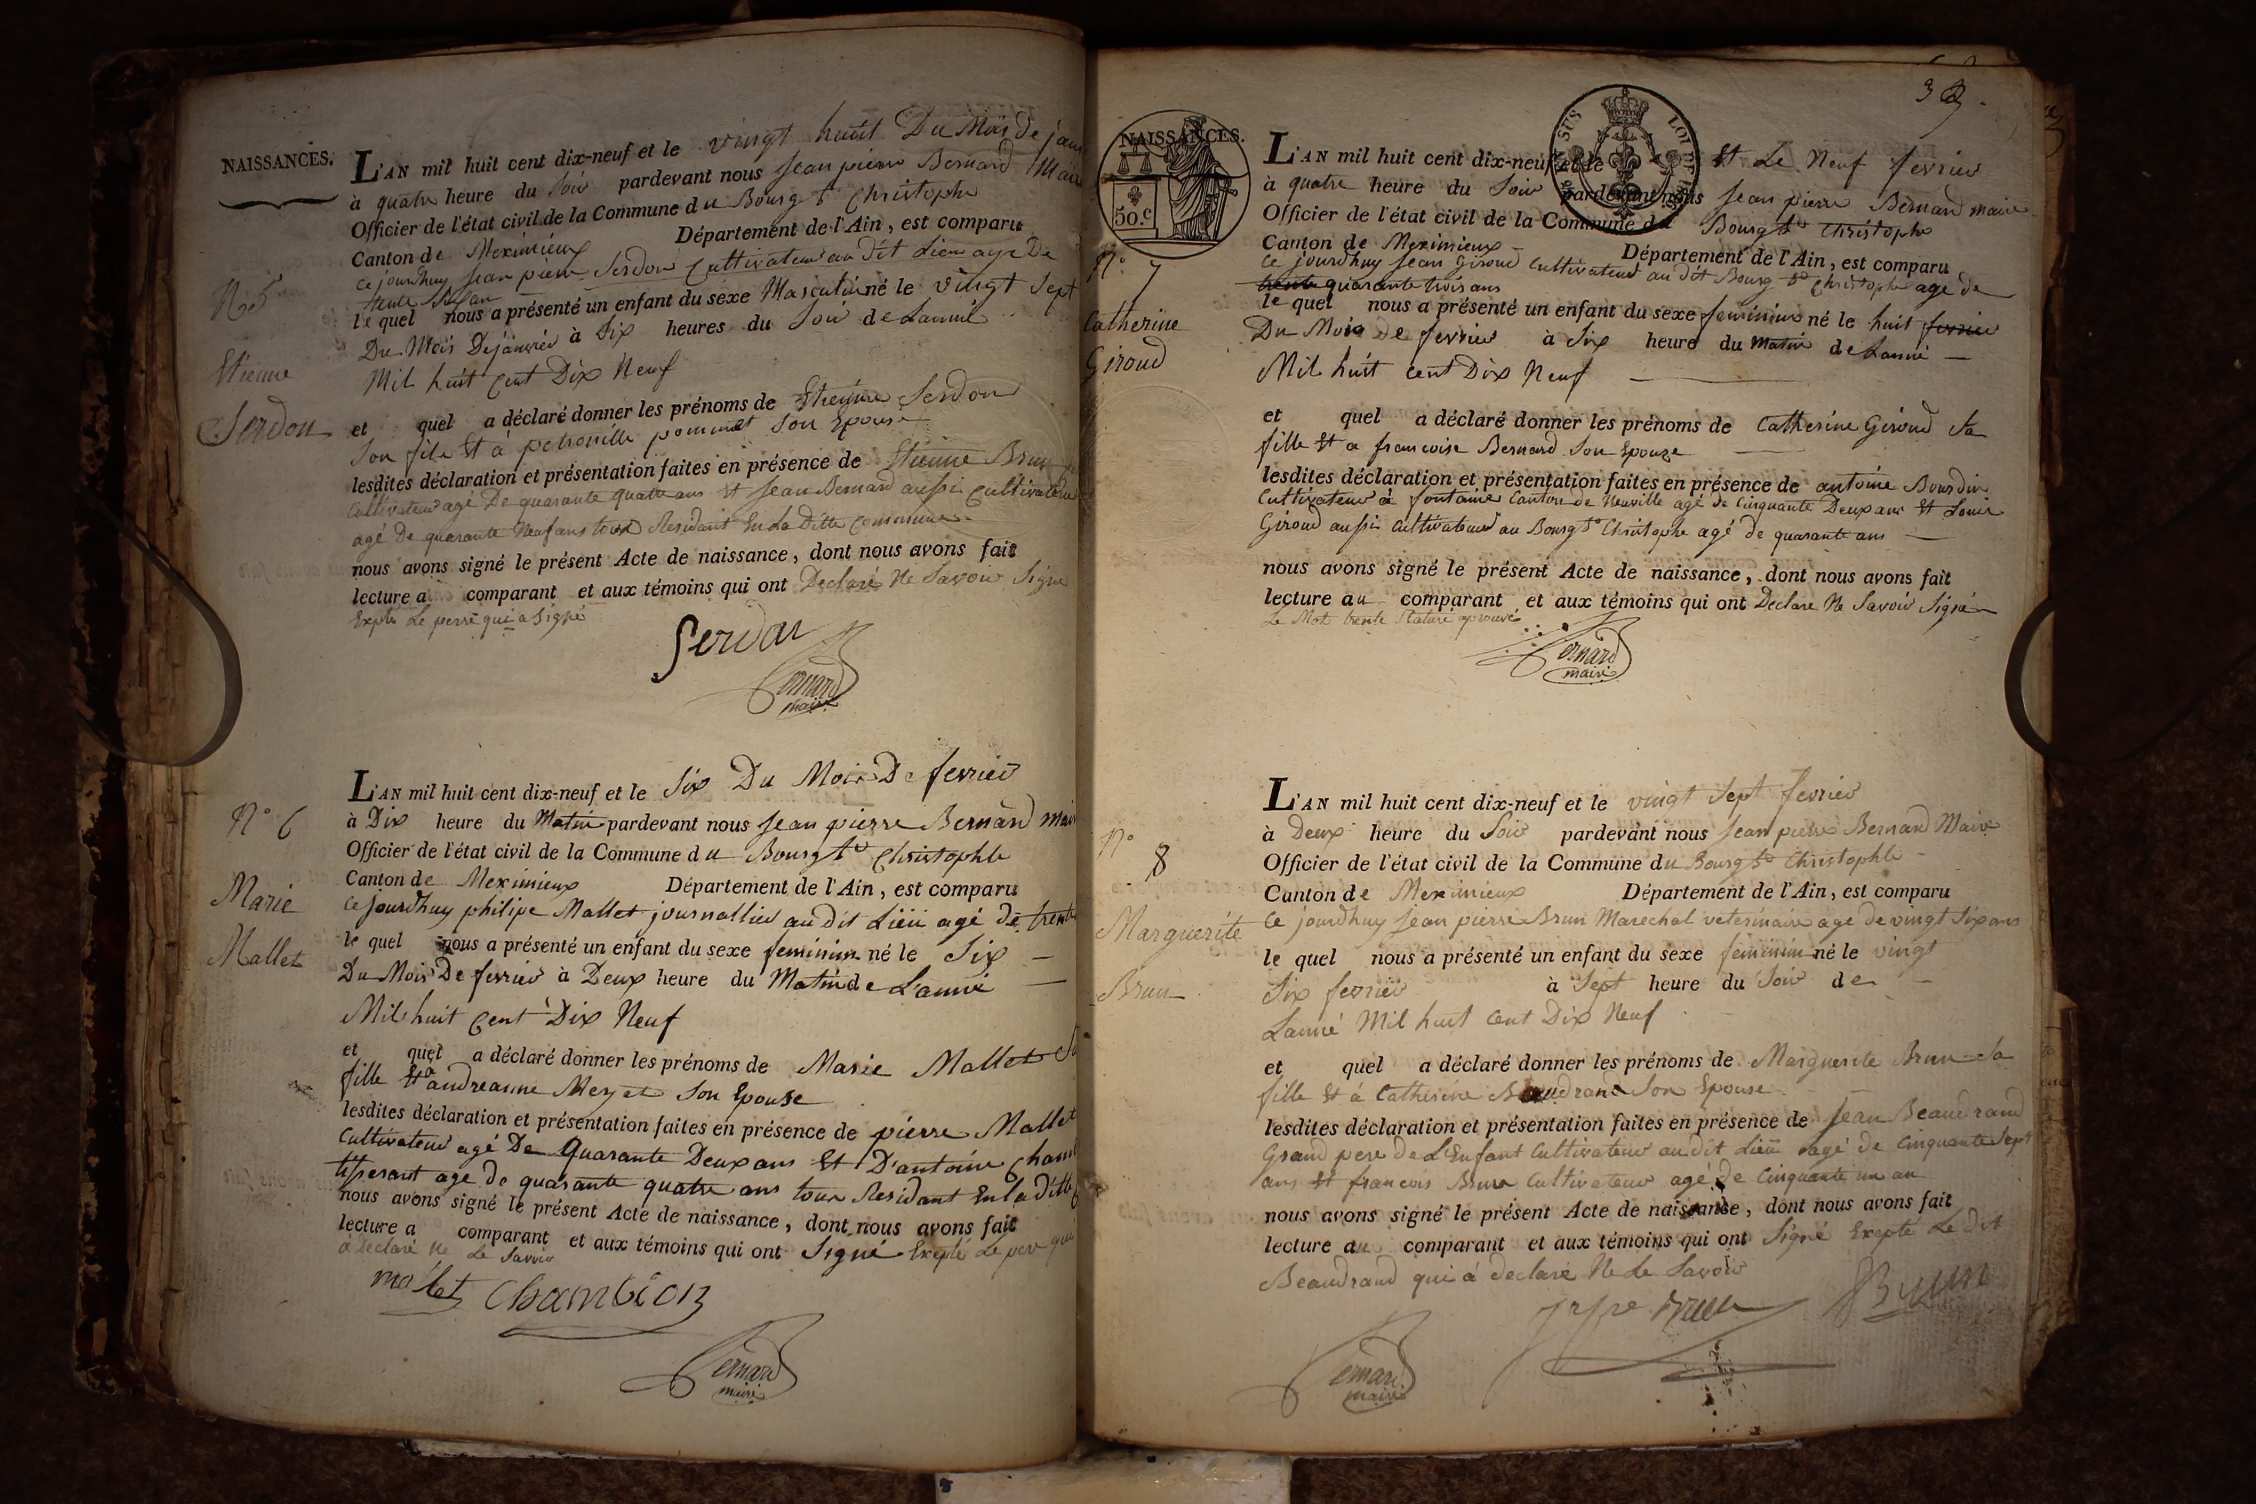 NAISSANCES.
L'AN mil huit cent dix-neuf et le vingt huit Du Mois de janv
à quatre heure du Soir pardevant nous Jean pierre Bernard Maire
Officier de l'état civil de la Commune du Bourg St Christophe
Canton de Meximieux Département de l'Ain, est comparu
Ce jourdhuy Jean pierre Serdon Cultivateur au Dit Lieu age De
trente
N° 5
le quel nous a présenté un enfant du sexe Masculin né le vingt Sept
Du Mois De janvier à Six heures du Soir de Lannié
Etienne
Mil huit Cent Dix Neuf
Serdon
et quel a déclaré donner les prénoms de Etienne Serdon
Son fils Et à petronille pommet Son Epouse
lesdites déclaration et présentation faites en présence de Etienne Brun
Cultivateur agé De quarante quatre ans Et Jean Bernard aussi Cultivateur
agé De quarante Neuf ans tous Residant En La Ditte Commune
nous avons signé le présent Acte de naissance, dont nous avons fait
lecture a comparant et aux témoins qui ont Declaré Ne Savoir Signe
Expté Le perre qui a Signé
Serdon
Bernard
maire
L'AN mil huit cent dix-neuf et le Six Du Mois De fevrier
N° 6
à Dix heure du Matin pardevant nous Jean pierre Bernard Maire
Officier de l'état civil de la Commune du Bourg St Christophle
Canton de Meximieux Département de l'Ain, est comparu
Marie
Ce jourdhuy philipe Mallet journallier au dit Lieu agé de trente
Mallet
le quel nous a présenté un enfant du sexe feminim né le Six
Du Mois De fevrier à Deux heure du Matin de L'annié
Mil huit Cent Dix Neuf
et quel a déclaré donner les prénoms de Marie Mallet Sa
fille Et a andreanne Son Epouse
lesdites déclaration et présentation faites en présence de pierre Mallet
Cultivateur agé De Quarante Deux ans Et D'antoine
tisserant age de quarante quatre ans tous Residant En la Ditte
nous avons signé le présent Acte de naissance, dont nous avons fait
lecture a comparant et aux témoins qui ont Signé Exepté Le pere qui
a Declaré Ne Le Savoir
Chambion
Bernard
maire
38.
NAISSANCES.
50.c
L'AN mil huit cent dix-neuf et le Et Le Neuf fevrier
à quatre heure du Soir pardevant nous Jean pierre Bernard maire
Officier de l'état civil de la Commune du Bourg St Christophe
Canton de Meximieux Département de l'Ain, est comparu
N° 7
Ce jourdhuy Jean Giroud Cultivateur au dit Bourg St Christophe age de
trente quarante trois ans
le quel nous a présenté un enfant du sexe feminim né le huit fevrier
Catherine
Du Mois De fevrier à Six heure du Matin de Lannié
Giroud
Mil huit cent Dix Neuf
et quel a déclaré donner les prénoms de Catherine Giroud Sa
fille Et a francoise Bernard Son Epouze
lesdites déclaration et présentation faites en présence de antoine Bourdin
Cultivateur à fontaine Canton de Neuville agé de Cinquante Deux ans Et Louis
Giroud aussi Cultivateur au Bourg St Christophe agé de quarante ans
nous avons signé le présent Acte de naissance, dont nous avons fait
lecture au comparant et aux témoins qui ont Declare Ne Savoir Signé
Le Mot trente
Bernard
maire
L'AN mil huit cent dix-neuf et le vingt Sept fevrier
à Deux heure du Soir pardevant nous Jean pierre Bernard Maire
N° 8
Officier de l'état civil de la Commune du Bourg St Christophle
Canton de Meximieux Département de l'Ain, est comparu
Marguerite
Ce jourdhuy Jean pierre Brun Marechal veterinaire age de vingt Six ans
le quel nous a présenté un enfant du sexe feminim né le vingt
Brun
Six fevrier à Sept heure du Soir de
Lannié Mil huit Cent Dix Neuf
et quel a déclaré donner les prénoms de Marguerite Brun Sa
fille Et à Catherine Beaudrand Son Epouse
lesdites déclaration et présentation faites en présence de Jean Beaudrand
Grand pere de L'Enfant Cultivateur au dit Lieu agé de Cinquante Sept
ans Et francois Brun Cultivateur agé de Cinquante un an
nous avons signé le présent Acte de naissance, dont nous avons fait
lecture au comparant et aux témoins qui ont Signé Exepté Le Dit
Beaudrand qui à declaré Ne Le Savoir
Brun
Bernard
maire